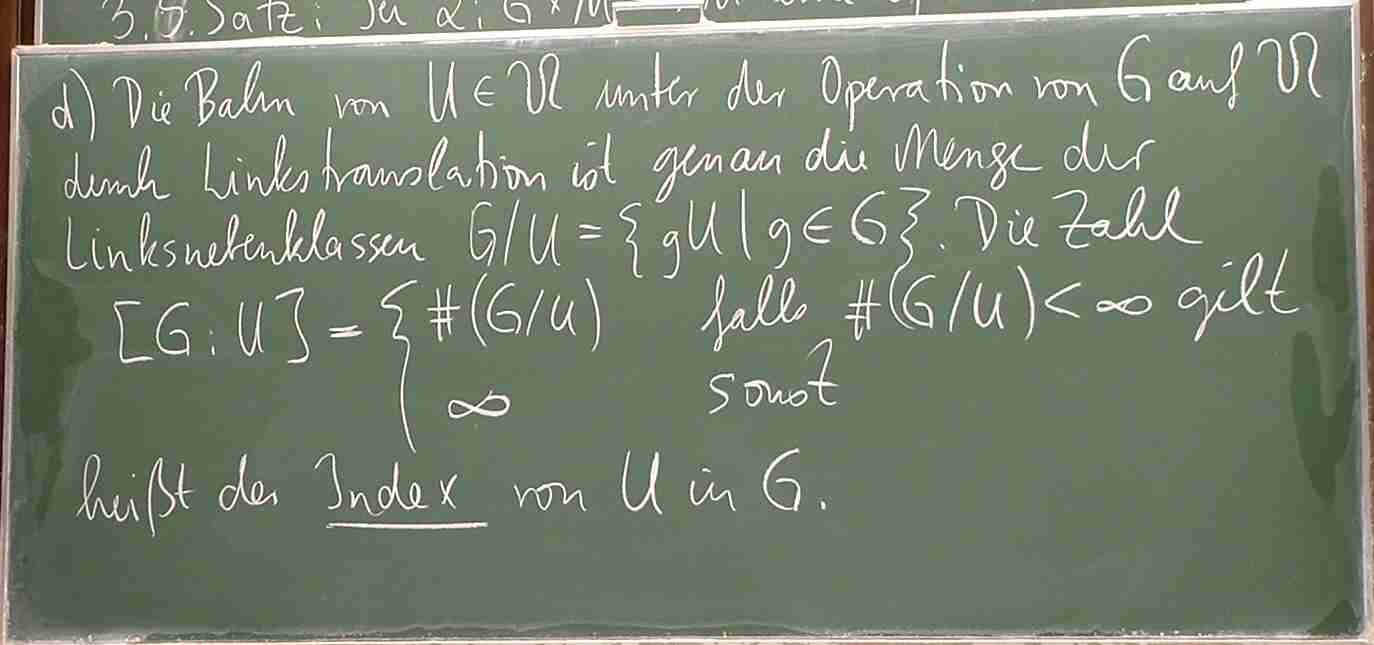 3.5. Satz: Sei α: G × M
d) Die Bahn von U ∈ 𝔐 unter der Operation von G auf 𝔐
durch Linkstranslation ist genau die Menge der
Linksnebenklassen G/U = {gU | g ∈ G}. Die Zahl
[G:U] = { #(G/U) falls #(G/U) < ∞ gilt
∞ sonst
heißt der Index von U in G.